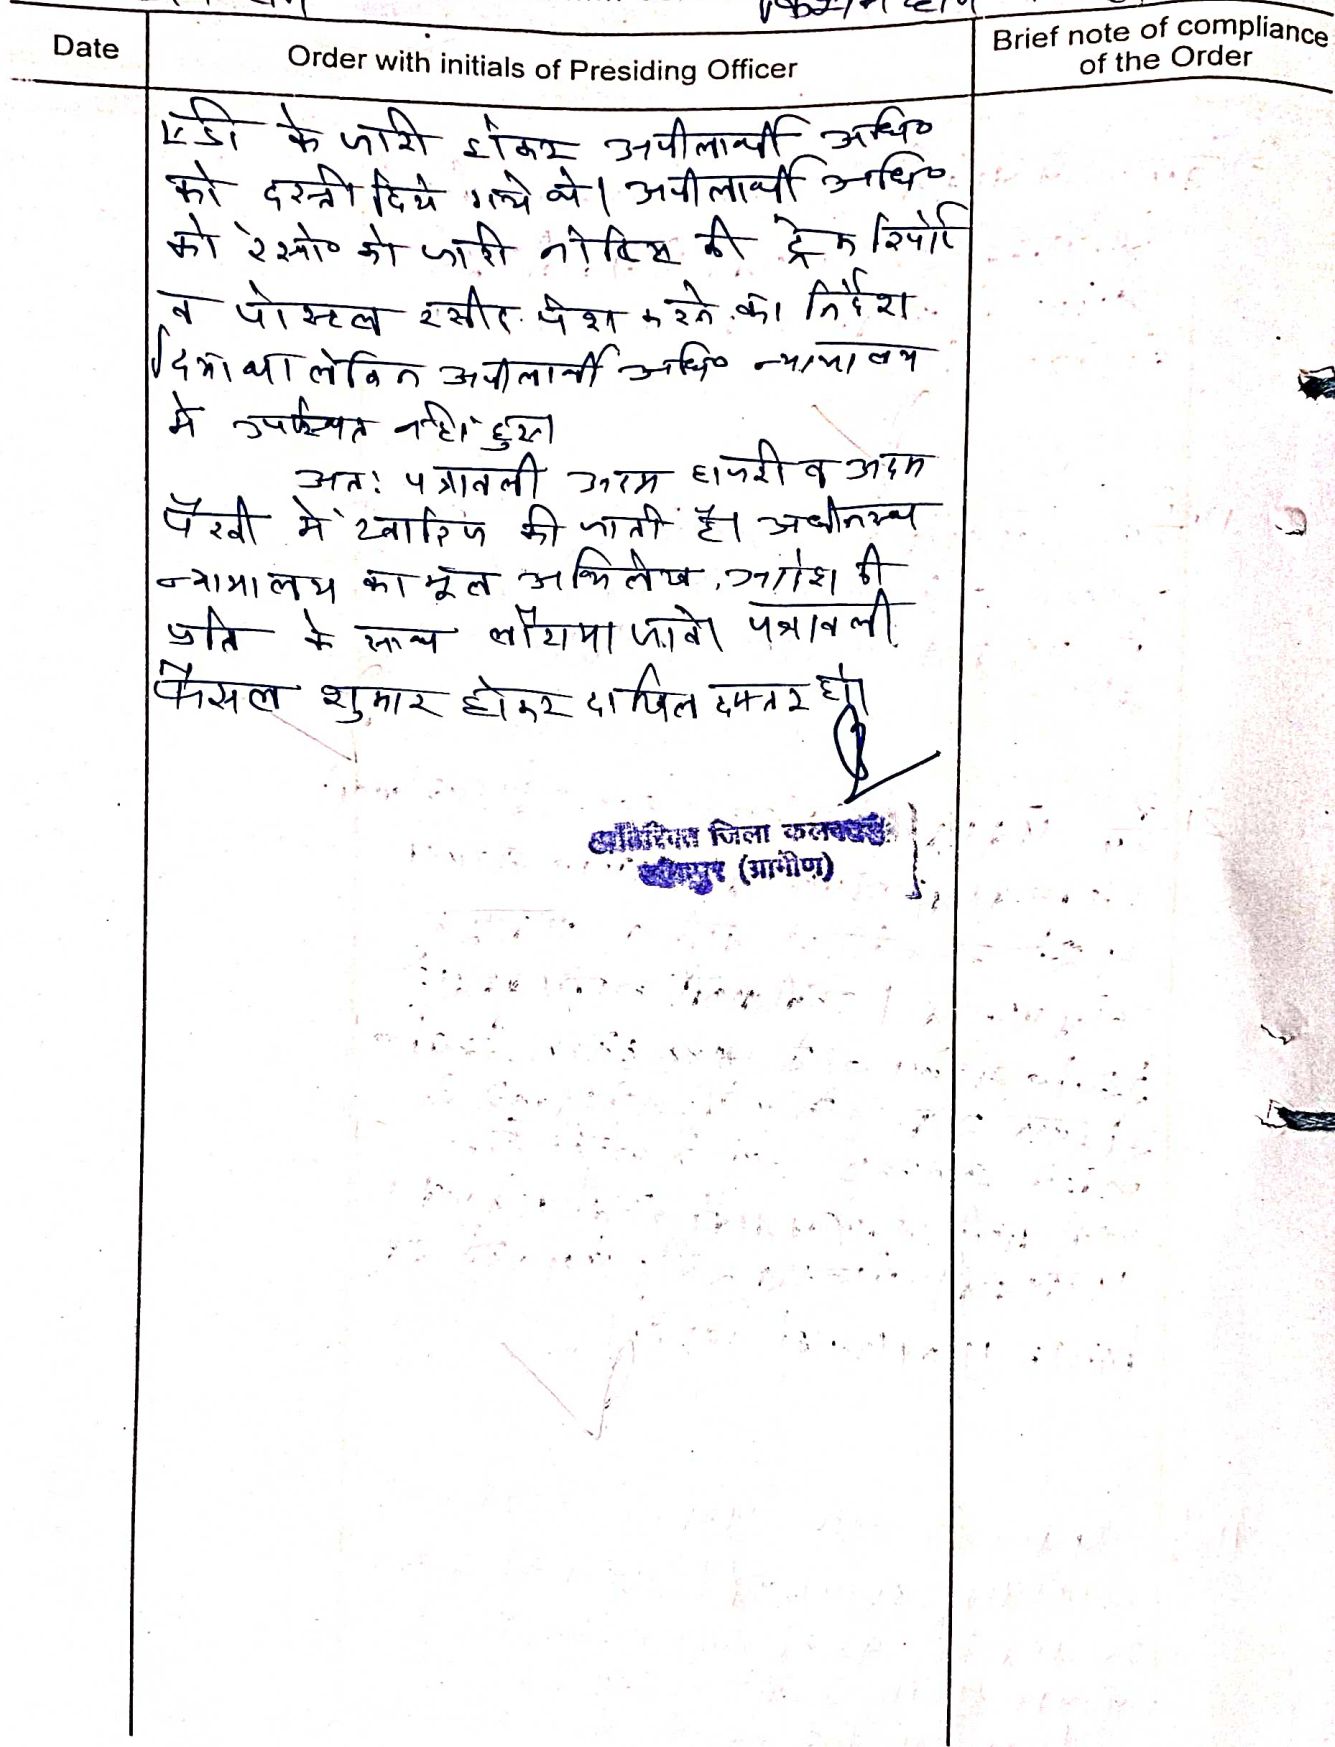 Date
Order with initials of Presiding Officer
Brief note of compliance
of the Order
एडी के जारी होकर अपीलार्थी अधि०
को दस्ती दिये गये थे। अपीलार्थी अधि०
को रेस्पो० को जारी नोटिस की ट्रेक रिपोर्ट
व पोस्टल रसीद पेश करने का निर्देश
दिया था लेकिन अपीलार्थी अधि० न्यायालय
में उपस्थित नहीं हुए।
अतः पत्रावली अदम हाजरी व अदम
पैरवी में खारिज की जाती है। अधीनस्थ
न्यायालय का मूल अभिलेख, आदेश की
प्रति के साथ लौटाया जावे। पत्रावली
फैसल शुमार होकर दाखिल दफ्तर हो।
अतिरिक्त जिला कलक्टर
(ग्रामीण)